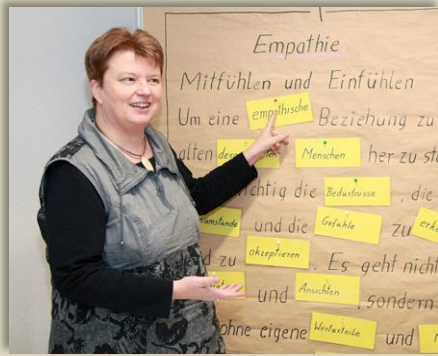 Empathie
Mitfühlen und Einfühlen
Um eine empathische Beziehung zu
alten Menschen her zu
die Bedürfnisse, die
und die Gefühle zu
zu akzeptieren. Es geht nicht
und Ansichten, sondern
ohne eigene Werturteile und